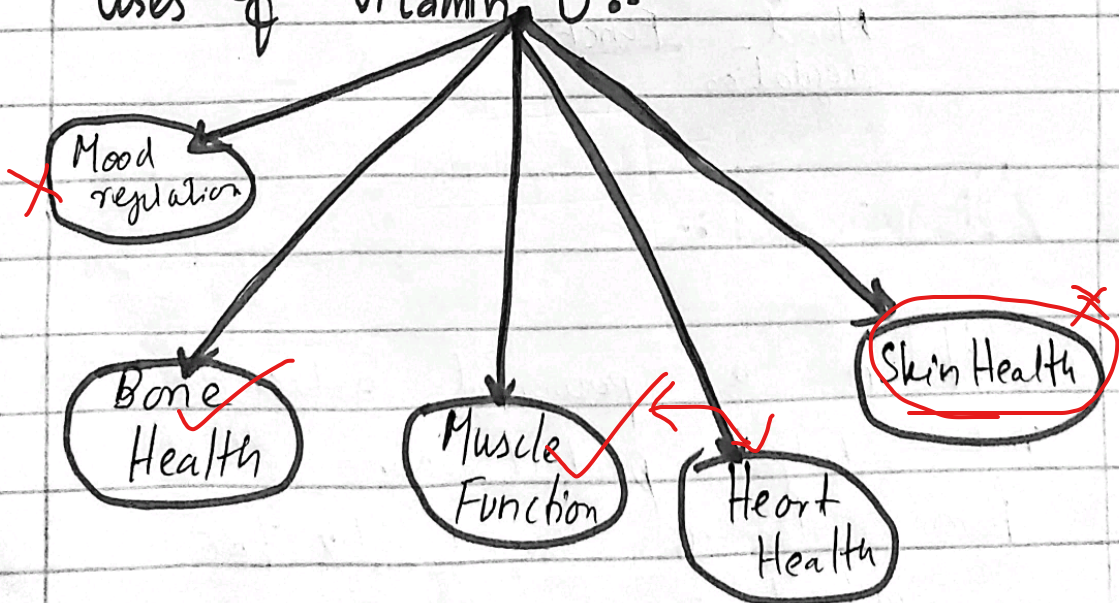 Uses of vitamin D:-
Mood
regulation
Bone
Health
Muscle
Function
Heart
Health
Skin Health